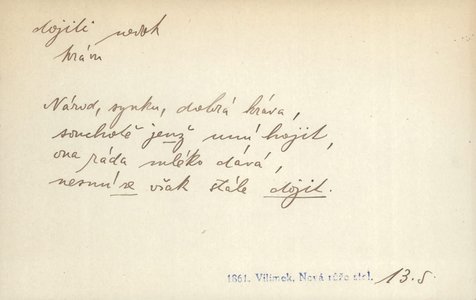 dojiti nedok
krám
Národ, synku, dobrá kráva,
souchotě jenž umí hojit,
ona ráda mléko dává,
nesmí se však stále dojit.
1861. Vilímek, Nová růže stol. 13. s.